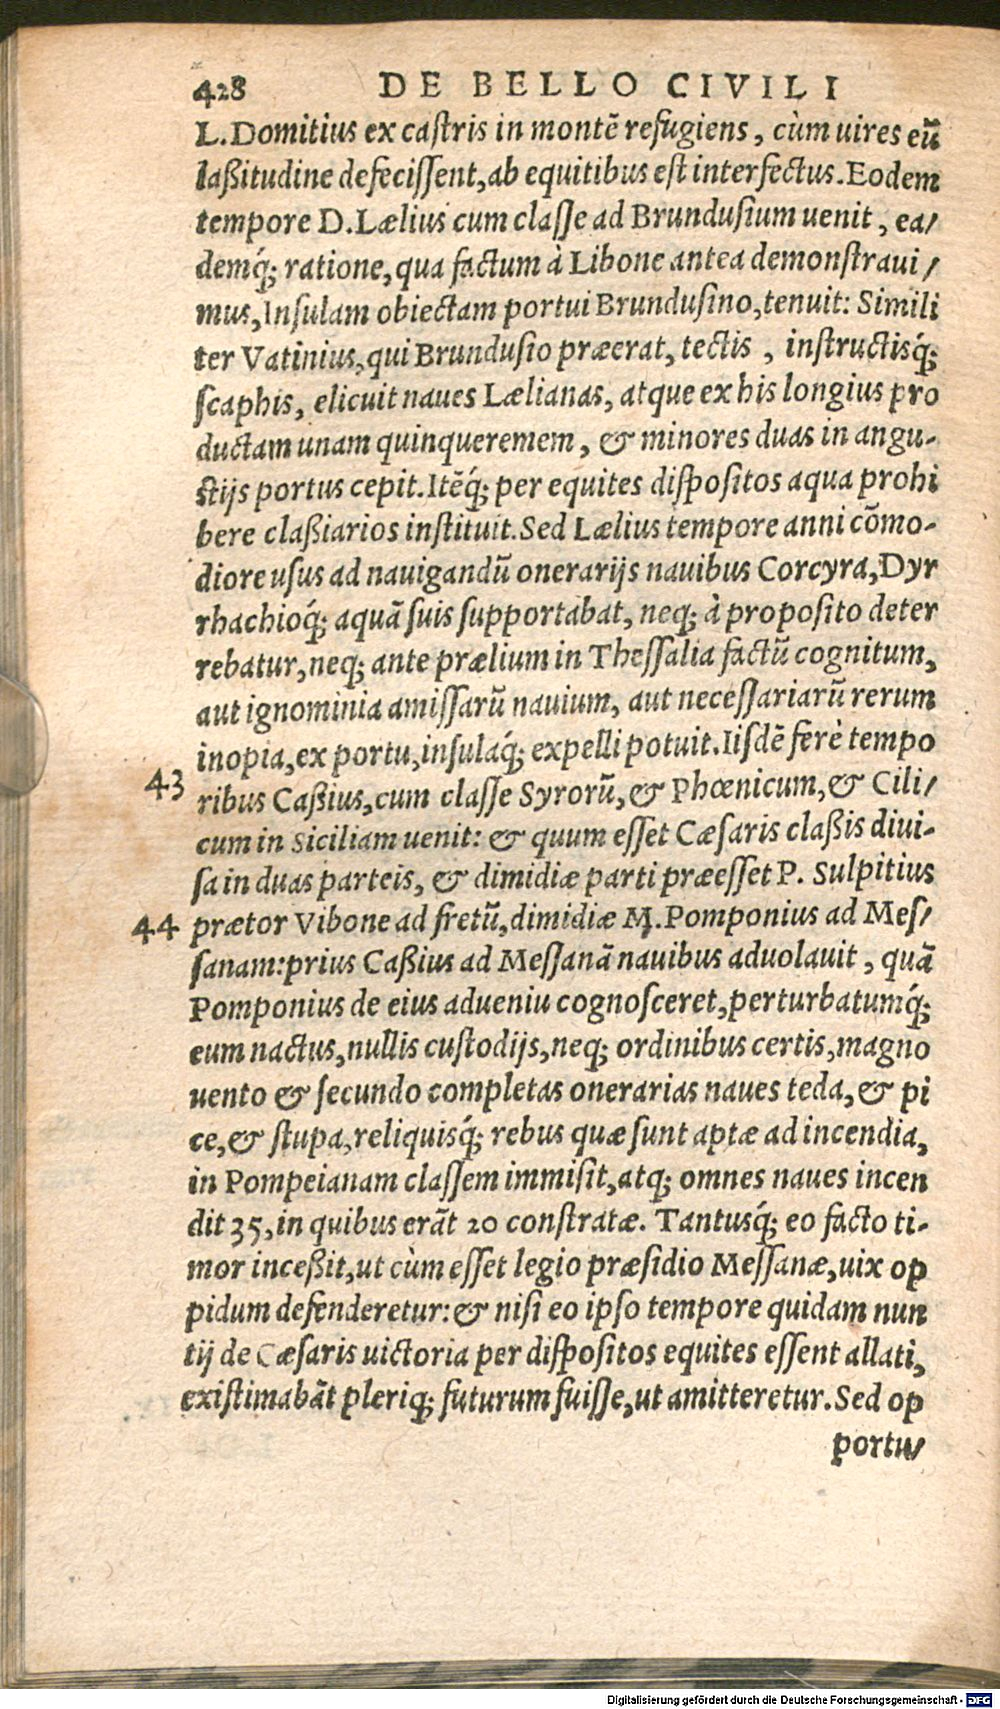 428 DE BELLO CIVILI
L. Domitius ex caſtris in montē refugiens, cùm uires eū
laßitudine defeciſſent, ab equitibus eſt interfectus. Eodem
tempore D. Lælius cum claſſe ad Brunduſium uenit, ea/
demq́; ratione, qua factum à Libone antea demonſtraui/
mus, Inſulam obiectam portui Brunduſino, tenuit: Simili
ter Vatinius, qui Brunduſio præerat, tectis, inſtructisq́;
ſcaphis, elicuit naues Lælianas, atque ex his longius pro
ductam unam quinqueremem, & minores duas in angu-
ſtijs portus cepit. Itēq́; per equites diſpoſitos aqua prohi
bere claßiarios inſtituit. Sed Lælius tempore anni cōmo-
diore uſus ad nauigandū onerarijs nauibus Corcyra, Dyr
rhachioq́; aquā ſuis ſupportabat, neq; à propoſito deter
rebatur, neq; ante prælium in Theſſalia factū cognitum,
aut ignominia amiſſarū nauium, aut neceſſariarū rerum
inopia, ex portu, inſulaq́; expelli potuit. Iiſdē ferè tempo
43 ribus Caßius, cum claſſe Syrorū, & Phœnicum, & Cili/
cum in Siciliam uenit: & quum eſſet Cæſaris claßis diui-
ſa in duas parteis, & dimidiæ parti præeſſet P. Sulpitius
44 prætor Vibone ad fretū, dimidiæ M. Pomponius ad Meſ/
ſanam: prius Caßius ad Meſſanā nauibus aduolauit, quā
Pomponius de eius adueniu cognoſceret, perturbatumq́;
eum nactus, nullis cuſtodijs, neq; ordinibus certis, magno
uento & ſecundo completas onerarias naues teda, & pi
ce, & ſtupa, reliquisq́; rebus quæ ſunt aptæ ad incendia,
in Pompeianam claſſem immiſit, atq; omnes naues incen
dit 35, in quibus erāt 20 conſtratæ. Tantusq́; eo facto ti-
mor inceßit, ut cùm eſſet legio præſidio Meſſanæ, uix op
pidum defenderetur: & niſi eo ipſo tempore quidam nun
tij de Cæſaris uictoria per diſpoſitos equites eſſent allati,
exiſtimabāt pleriq; futurum fuiſſe, ut amitteretur. Sed op
portu/
Digitalisierung gefördert durch die Deutsche Forschungsgemeinschaft - DFG